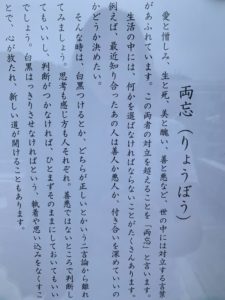 両忘(りょうぼう)
愛と憎しみ、生と死、美と醜い、善と悪など、世の中には対立する言葉
があふれています。この両者の対立を超えることを「両忘」と言います。
生活の中には、何かを選ばなければならないことがたくさんあります。
例えば、最近知り合ったあの人は善人か悪人か、付き合いを深めていいの
かどうか決めたい。
そんな時は、白黒つけるとか、どちらが正しいとかいう二言論から離れ
てみましょう。思考も感じ方も人それぞれ。善悪ではないところで判断し
てもいいし、判断がつかなければ、ひとまずそのままにしておいてもいい
でしょう。白黒はっきりさせなければという、執着や思い込みをなくすこ
とで、心が放たれ、新しい道が開けることもあります。